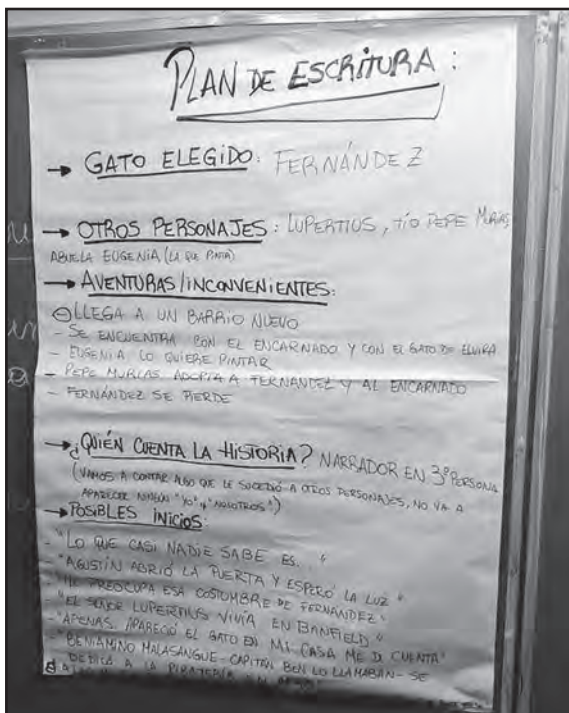 PLAN DE ESCRITURA:
→ GATO ELEGIDO: FERNÁNDEZ
→ OTROS PERSONAJES: LUPERTIUS, TÍO PEPE MURCAS,
ABUELA EUGENIA (LA QUE PINTA)
→ AVENTURAS/INCONVENIENTES:
LLEGA A UN BARRIO NUEVO
- SE ENCUENTRA CON EL ENCARNADO Y CON EL GATO DE ELVIRA
- EUGENIA LO QUIERE PINTAR
- PEPE MURCAS ADOPTA A FERNÁNDEZ Y AL ENCARNADO
- FERNÁNDEZ SE PIERDE
→ ¿QUIÉN CUENTA LA HISTORIA? NARRADOR EN 3º PERSONA
(VAMOS A CONTAR ALGO QUE LE SUCEDIÓ A OTROS PERSONAJES, NO VA A
APARECER NINGÚN "YO" "NOSOTROS")
→ POSIBLES INICIOS:
- "LO QUE CASI NADIE SABE ES..."
- "AGUSTÍN ABRIÓ LA PUERTA Y ESPERÓ LA LUZ"
- "ME PREOCUPA ESA COSTUMBRE DE FERNÁNDEZ"
- "EL SEÑOR LUPERTIUS VIVÍA EN BANFIELD"
- "APENAS APARECIÓ EL GATO EN MI CASA ME DI CUENTA"
- "BENIAMINO MALASANGUE - CAPITÁN BEN LO LLAMABAN - SE
DEDICA A LA PIRATERÍA